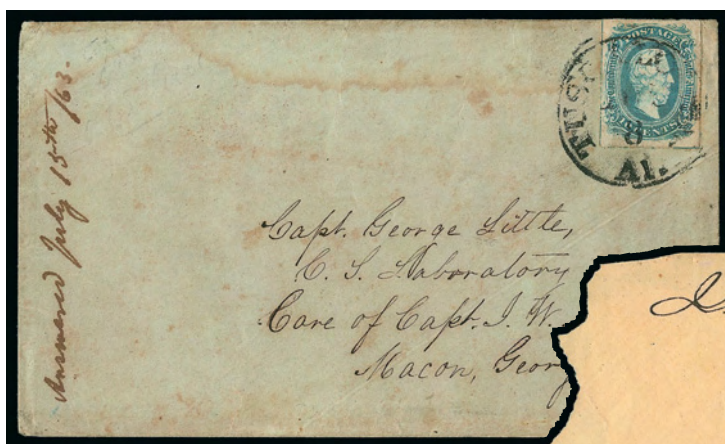 Answered July 15th /63.
POSTAGE
CENTS
TUS
8
Al.
Capt. George Little,
C. S. Laboratory
Care of Capt. J. W.
Macon, Geor